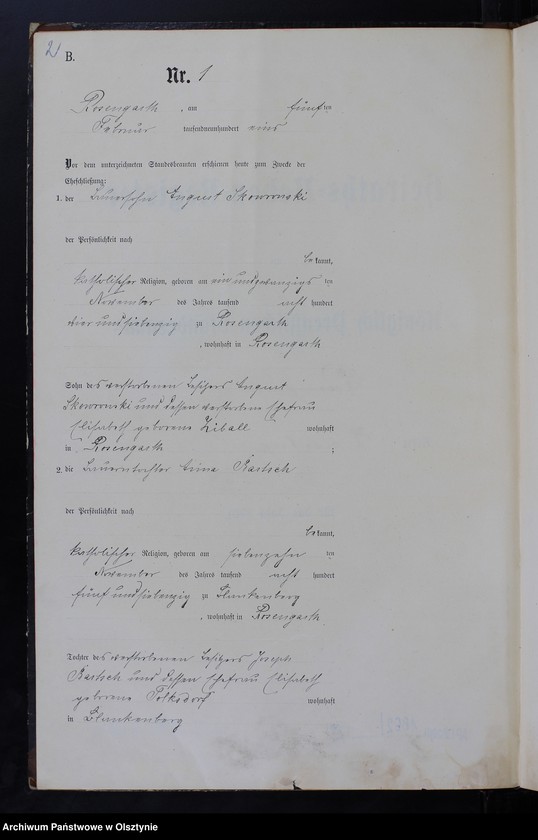 2
B.
Nr. 1
Rosengarth, am fünften
Februar tausendneunhundert eins
Vor dem unterzeichneten Standesbeamten erschienen heute zum Zwecke der
Eheschließung:
1. der Bauersohn August Skowronski
der Persönlichkeit nach
bekannt,
katholischer Religion, geboren am einundzwanzigsten
November des Jahres tausend acht hundert
vier und siebenzig zu Rosengarth
, wohnhaft in Rosengarth
Sohn des verstorbenen Besitzers August
Skowronski und dessen verstorbene Ehefrau
Elisabeth geborene wohnhaft
in Rosengarth ;
2. die Bauerntochter Anna Bartsch
der Persönlichkeit nach
bekannt,
katholischer Religion, geboren am siebenzehnten
November des Jahres tausend acht hundert
fünf und siebenzig zu Blankenberg
, wohnhaft in Rosengarth
Tochter des verstorbenen Besitzers Joseph
Bartsch und dessen Ehefrau Elisabeth
geborene Tolksdorf wohnhaft
in Blankenberg
Archiwum Państwowe w Olsztynie